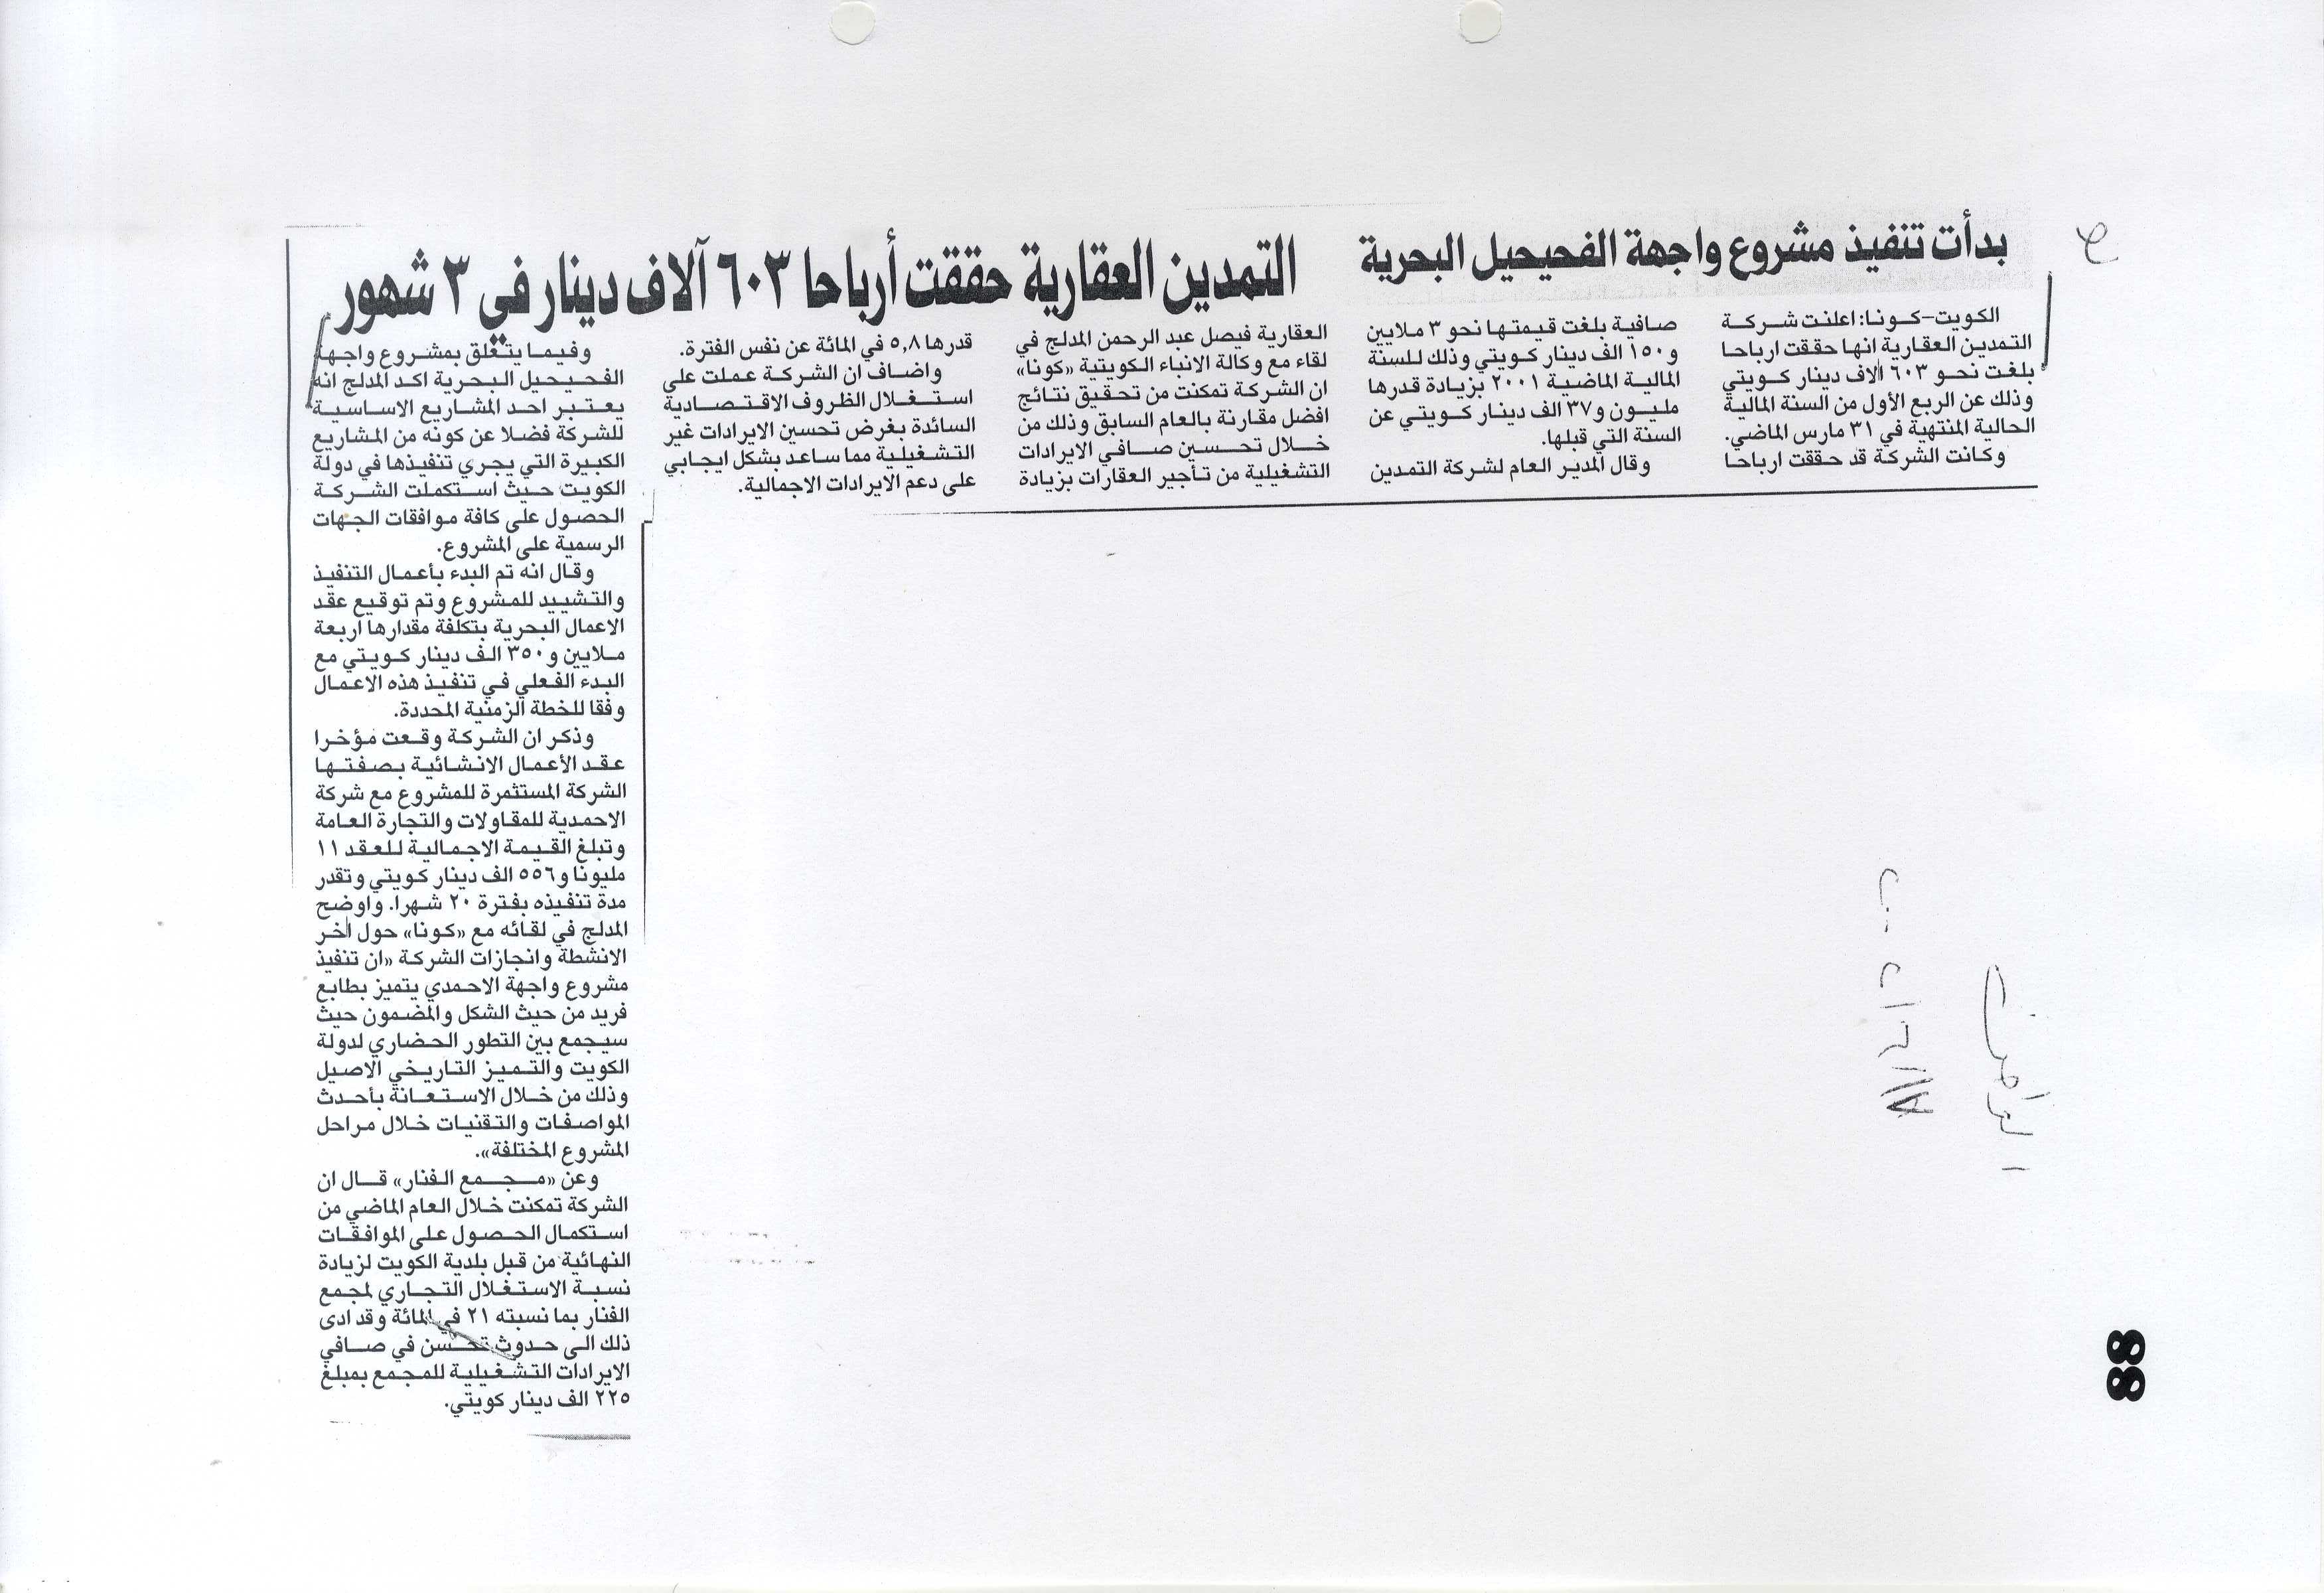 بدأت تنفيذ مشروع واجهة الفحيحيل البحرية
التمدين العقارية حققت أرباحا ٦٠٣ آلاف دينار في ٣ شهور
الكويت-كونا: اعلنت شركة
التمدين العقارية انها حققت ارباحا
بلغت نحو ٦٠٣ الاف دينار كويتي
وذلك عن الربع الأول من السنة المالية
الحالية المنتهية في ٣١ مارس الماضي.
وكانت الشركة قد حققت ارباحا
صافية بلغت قيمتها نحو ٣ ملايين
و١٥٠ الف دينار كويتي وذلك للسنة
المالية الماضية ٢٠٠١ بزيادة قدرها
مليون و٣٧ الف دينار كويتي عن
السنة التي قبلها.
وقال المدير العام لشركة التمدين
العقارية فيصل عبد الرحمن المدلج في
لقاء مع وكالة الانباء الكويتية «كونا»
ان الشركة تمكنت من تحقيق نتائج
افضل مقارنة بالعام السابق وذلك من
خلال تحسين صافي الايرادات
التشغيلية من تأجير العقارات بزيادة
قدرها ٥,٨ في المائة عن نفس الفترة.
واضاف ان الشركة عملت على
استغلال الظروف الاقتصادية
السائدة بغرض تحسين الايرادات غير
التشغيلية مما ساعد بشكل ايجابي
على دعم الايرادات الاجمالية.
وفيما يتعلق بمشروع واجهة
الفحيحيل البحرية اكد المدلج انه
يعتبر احد المشاريع الاساسية
للشركة فضلا عن كونه من المشاريع
الكبيرة التي يجري تنفيذها في دولة
الكويت حيث استكملت الشركة
الحصول على كافة موافقات الجهات
الرسمية على المشروع.
وقال انه تم البدء بأعمال التنفيذ
والتشييد للمشروع وتم توقيع عقد
الاعمال البحرية بتكلفة مقدارها اربعة
ملايين و٣٥٠ الف دينار كويتي مع
البدء الفعلي في تنفيذ هذه الاعمال
وفقا للخطة الزمنية المحددة.
وذكر ان الشركة وقعت مؤخرا
عقد الأعمال الانشائية بصفتها
الشركة المستثمرة للمشروع مع شركة
الاحمدية للمقاولات والتجارة العامة
وتبلغ القيمة الاجمالية للعقد ١١
مليونا و٥٥٦ الف دينار كويتي وتقدر
مدة تنفيذه بفترة ٢٠ شهرا. واوضح
المدلج في لقائه مع «كونا» حول اخر
الانشطة وانجازات الشركة «ان تنفيذ
مشروع واجهة الاحمدي يتميز بطابع
فريد من حيث الشكل والمضمون حيث
سيجمع بين التطور الحضاري لدولة
الكويت والتميز التاريخي الاصيل
وذلك من خلال الاستعانة بأحدث
المواصفات والتقنيات خلال مراحل
المشروع المختلفة».
وعن «مجمع الفنار» قال ان
الشركة تمكنت خلال العام الماضي من
استكمال الحصول على الموافقات
النهائية من قبل بلدية الكويت لزيادة
نسبة الاستغلال التجاري لمجمع
الفنار بما نسبته ٢١ في المائة وقد ادى
ذلك الى حدوث تحسن في صافي
الايرادات التشغيلية للمجمع بمبلغ
٢٢٥ الف دينار كويتي.
88